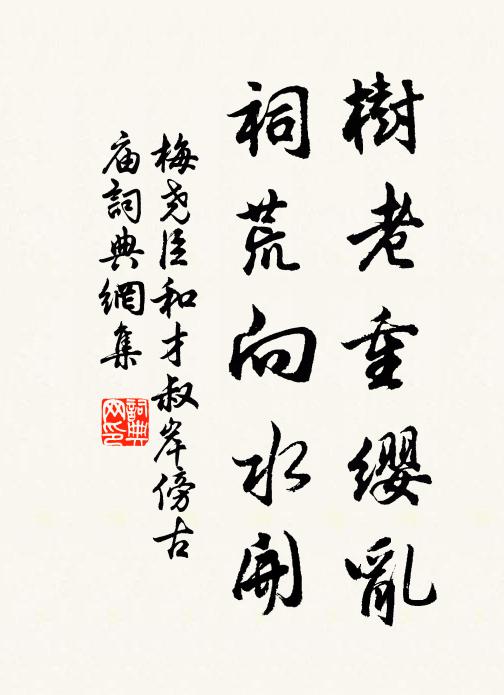 樹老重缨亂
祠荒向水開
梅尧臣和才叔岸傍古
庙詞典網集
詞典网印